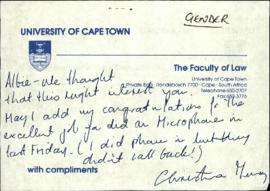 GENDER
UNIVERSITY OF CAPE TOWN
The Faculty of Law
University of Cape Town
Private Bag · Rondebosch 7700 · Cape · South Africa
Telephone 650-2707
Albie - we thought
that this might interest you.
May I add my congratulations to the
excellent job you did on Microphone in
last Friday. (I did phone in but they
didn't call back!)
with compliments
Christina Murray